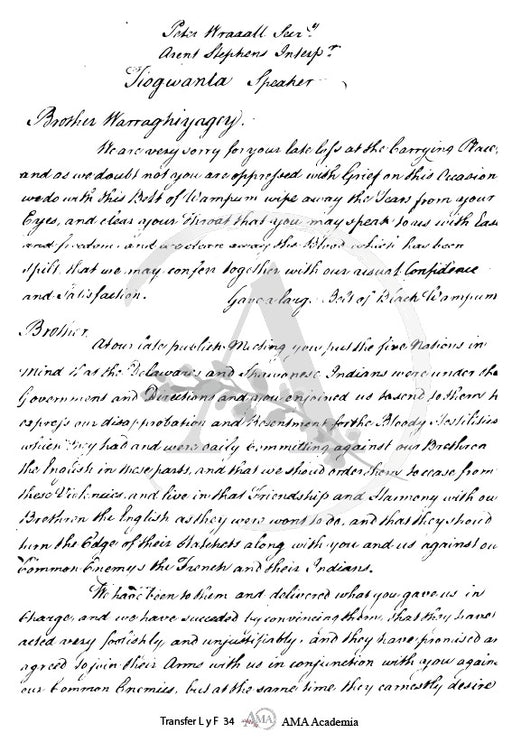 Peter Wraxall Secry
Arent Stephens Interpr
Tiogwanta Speaker
Brother Warraghiyagey.
We are very sorry for your late loss at the Carrying Place,
and as we doubt not you are oppressed with Grief on this Occasion
we do with this Belt of Wampum wipe away the Tears from your
Eyes, and clear your Throat that you may speak to us with Ease
and freedom, and we clear away the Blood which has been
spilt, that we may confer together with our usual Confidence
and Satisfaction. Gave a large Belt of Black Wampum
Brother
At our late publick Meeting you put the five Nations in
mind that the Delawares and Shawanese Indians were under the
Government and Direction and you enjoined us to send to them to
express our disapprobation and Resentment for the Bloody Hostilities
which they had and were daily committing against our Brethren
the English in these parts, and that we should order them to cease from
these Violencies, and live in that Friendship and Harmony with our
Brethren the English as they were wont to do, and that they should
turn the Edge of their Hatchets along with you and us against our
Common Enemys the French and their Indians.
We have been to them and delivered what you gave us in
Charge, and we have succeded by convincing them, that they have
acted very foolishly and unjustifiably, and they have promised and
agreed to join their Arms with us in conjunction with you against
our Common Enemies, but at the same time they earnestly desire
Transfer L y F 34 AMA AMA Academia